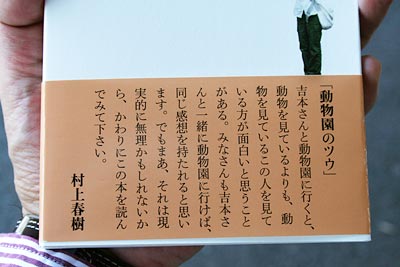 「動物園のツウ」
吉本さんと動物園に行くと、
動物を見ているよりも、動
物を見ているこの人を見て
いる方が面白いと思うこと
がある。みなさんも吉本さ
んと一緒に動物園に行けば、
同じ感想を持たれると思い
ます。でもまあ、それは現
実的に無理かもしれないか
ら、かわりにこの本を読ん
でみて下さい。
村上春樹